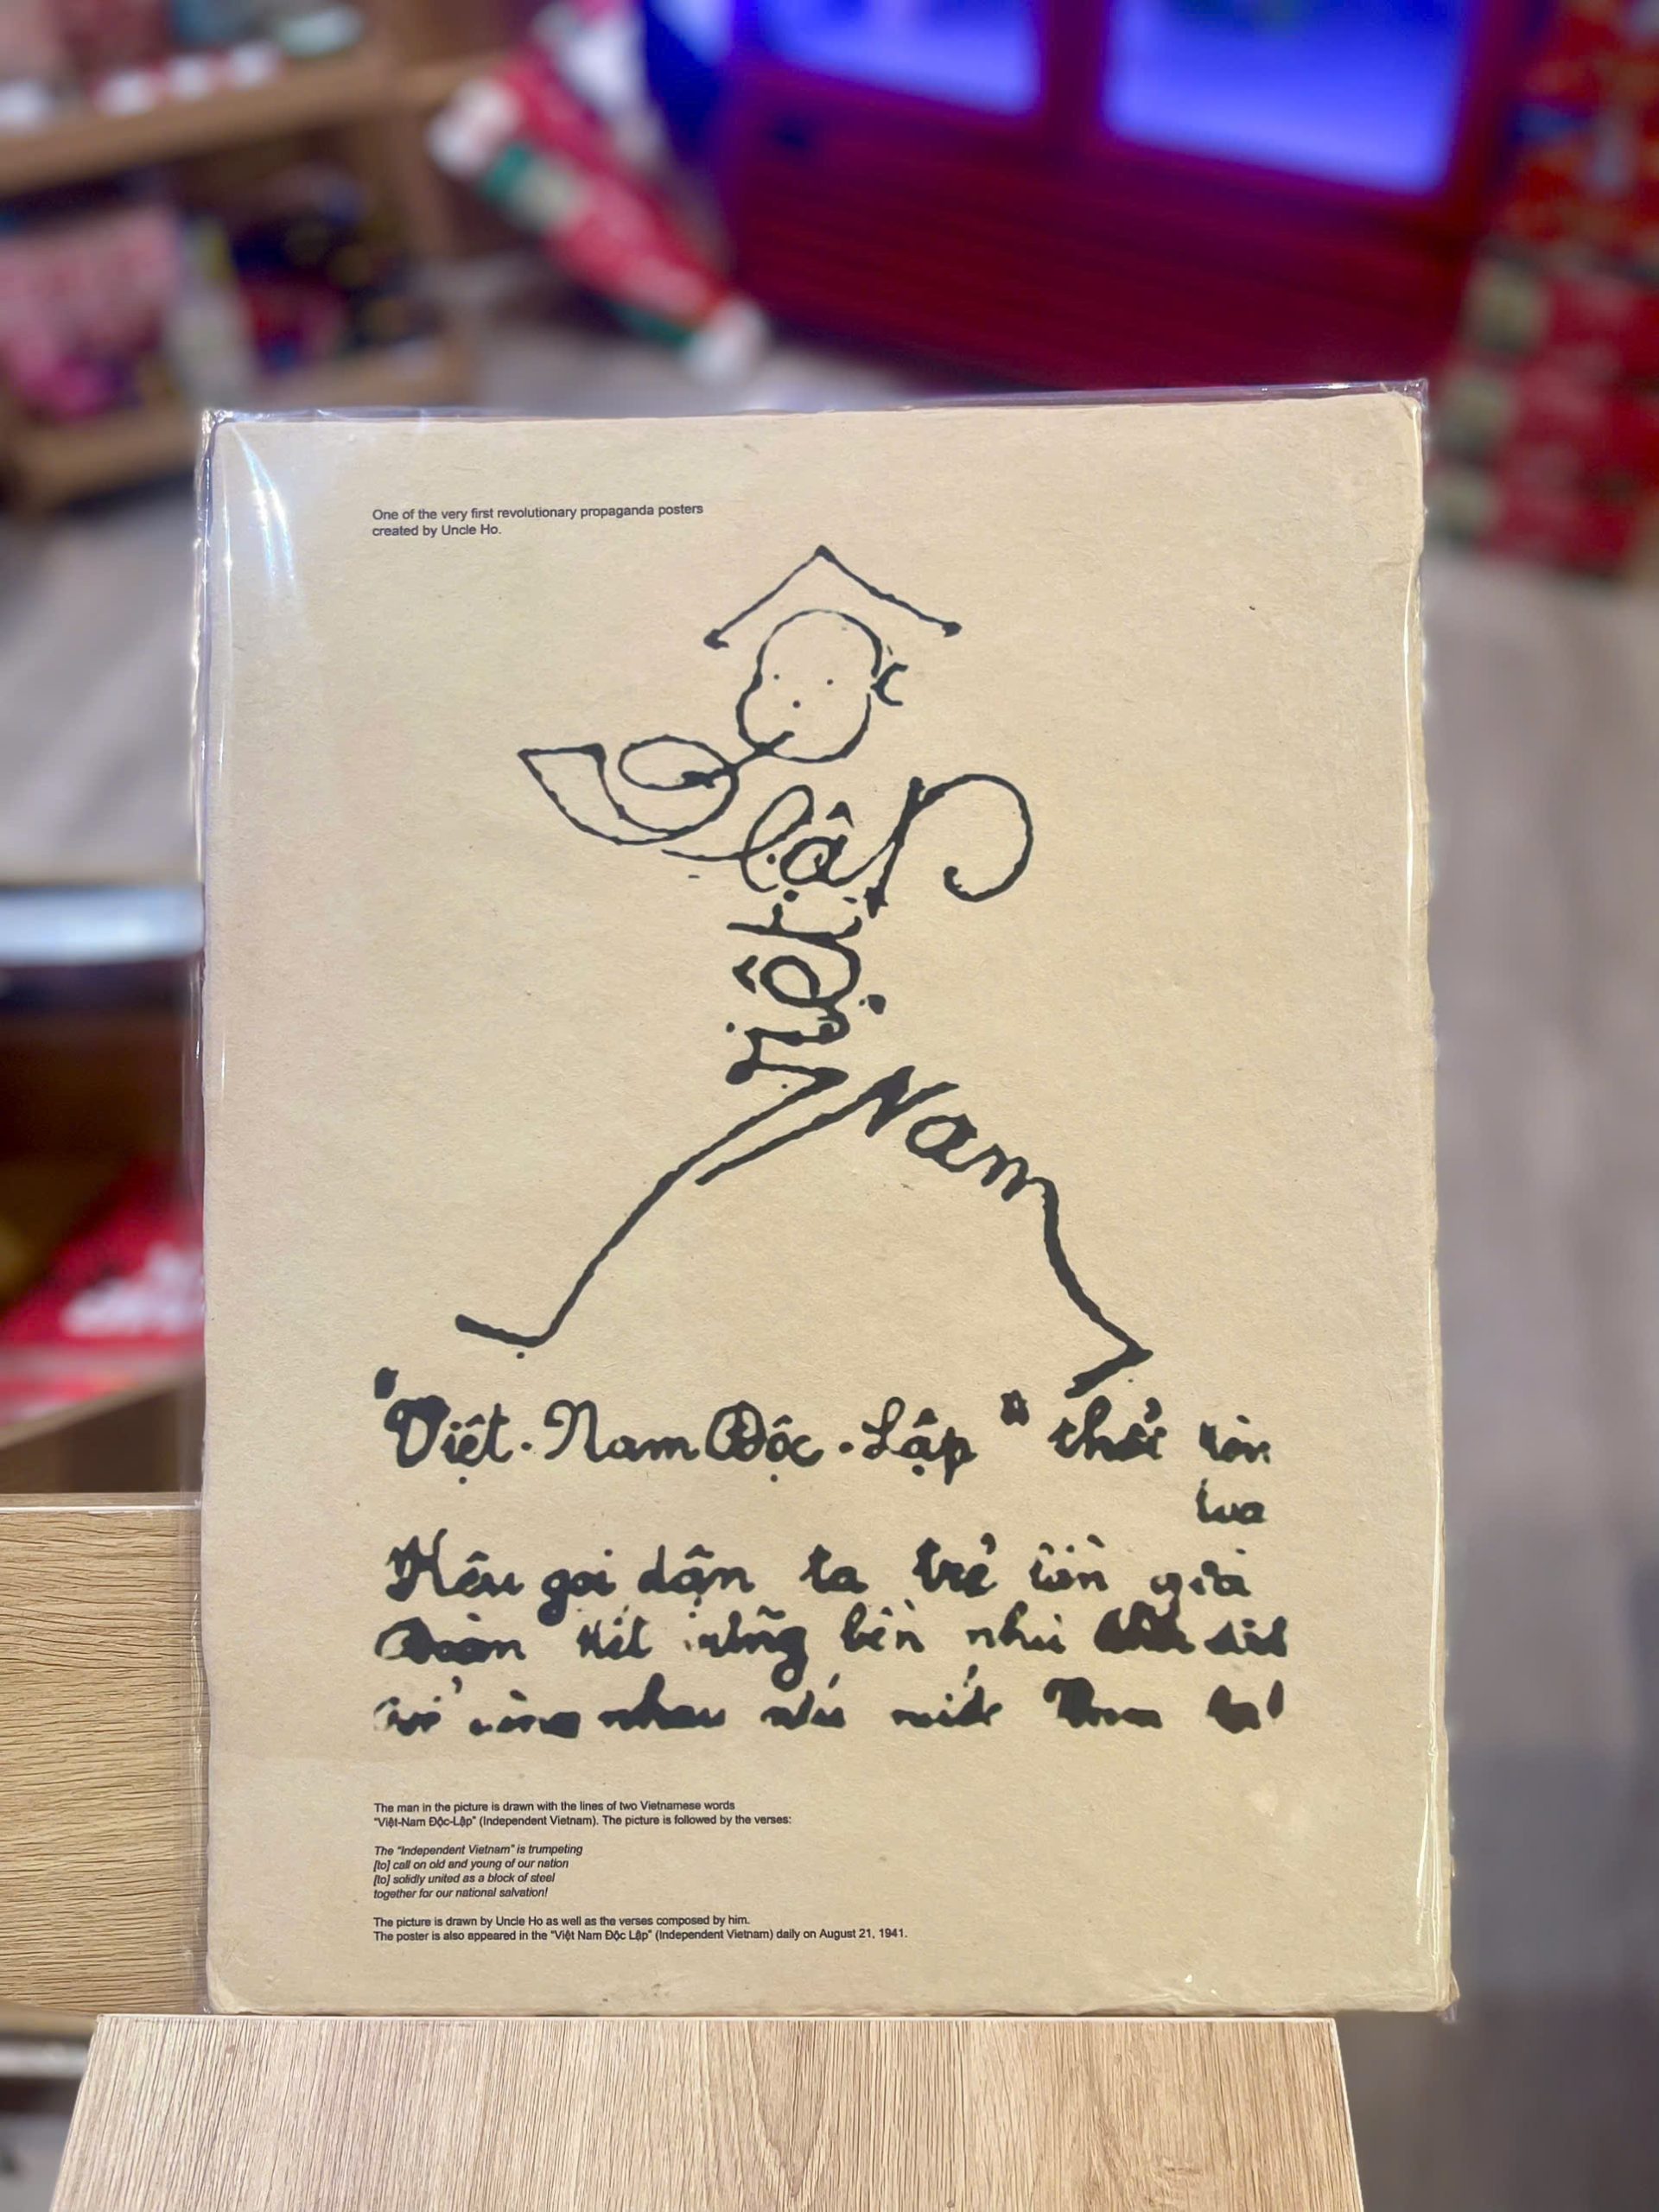 One of the very first revolutionary propaganda posters
created by Uncle Ho.
lập
Việt
Nam
"Việt·Nam Độc·Lập" thổi kèn
loa
Kêu gọi dân ta trẻ lẫn già
Đoàn kết vững bền như sắt
cùng nhau cứu nước Nam ta!
The man in the picture is drawn with the lines of two Vietnamese words
"Việt-Nam Độc-Lập" (Independent Vietnam). The picture is followed by the verses:
The "Independent Vietnam" is trumpeting
[to] call on old and young of our nation
[to] solidly united as a block of steel
together for our national salvation!
The picture is drawn by Uncle Ho as well as the verses composed by him.
The poster is also appeared in the "Việt Nam Độc Lập" (Independent Vietnam) daily on August 21, 1941.